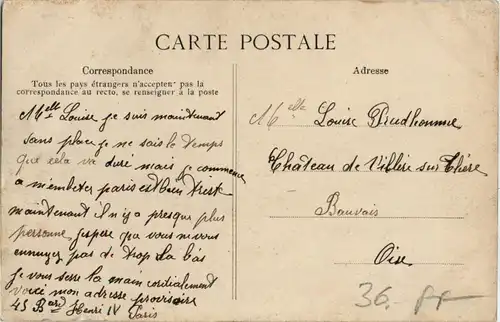 CARTE POSTALE
Correspondance
Tous les pays étrangers n'acceptent pas la
correspondance au recto, se renseigner à la poste
Melle Louise je suis maintenant
sans place je ne sais le temps
que cela va duré mais je commence
a m'embeter paris est bien triste
maintenant il n'y a presque plus
personne jespere que vous ne vous
ennuyez pas de trop la bàs
je vous serre la main cordialement
voici mon adresse provisoire
45 Bard Henri IV Paris
Adresse
Melle Louise Prudhomme
Chateau de Villers sur Thère
Bauvais
Oise
36.-